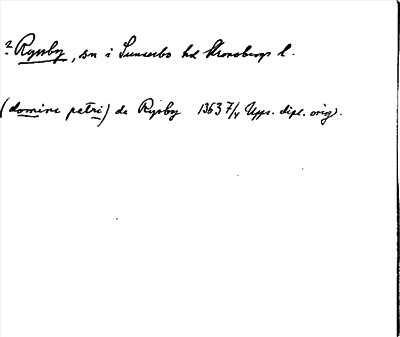 ? Ryssby, sn i Sunnerbo hd Kronobergs l.
(domine petri) de Rysby 1363 7/4 Upps. dipl. orig.